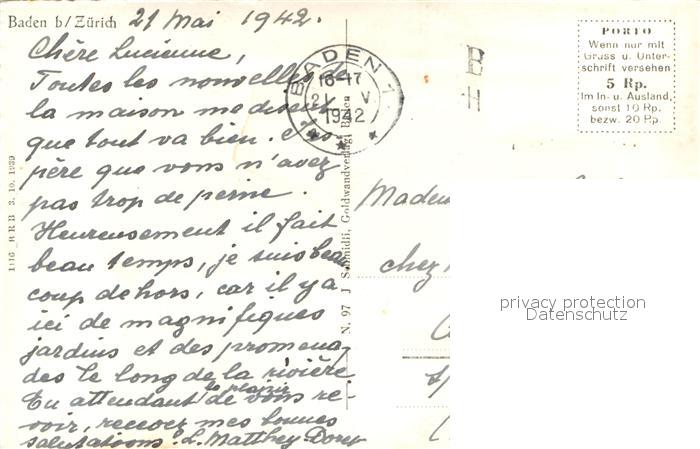 Baden b/Zürich 21 Mai 1942.
Chère Lucienne,
Toutes les nouvelles de
la maison me disent
que tout va bien. J'es-
père que vous n'avez
pas trop de peine.
Heureusement il fait
beau temps, je suis beau
coup dehors, car il y a
ici de magnifiques
jardins et des promena
des le long de la rivière.
En attendant le plaisir de vous re-
voir, recevez mes bonnes
salutations. L. Matthey Dorey
1116 BRB 3. 10. 1939
N. 97 J Schmidli, Goldwandverlag Baden
BADEN 1
16-17
21 V
1942
B
H
PORTO
Wenn nur mit
Gruss u. Unter-
schrift versehen
5 Rp.
Im In- u. Ausland,
sonst 10 Rp.
bezw. 20 Rp.
Madem
chez
privacy protection
Datenschutz